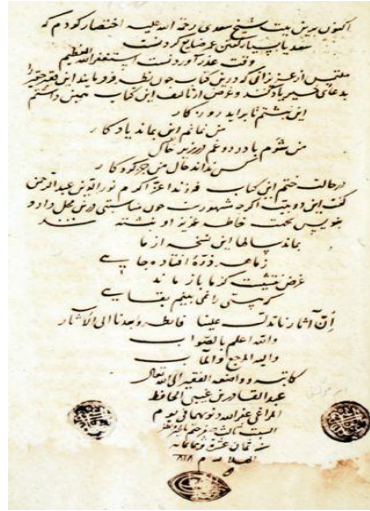 اکنون برین بیت شیخ سعدی رحمة الله علیه اختصار کردم که
سعدیا بسیار گفتن عمر ضایع کردنست
وقت عذر آوردنست استغفر الله العظیم
ملتمس از عزیزانی که درین کتاب چون نظر فرمایند این فقیر حقیر را
بدعای خیر یاد کنند و غرض از تألیف این کتاب همین داشتم
این نبشتم تا براید روزگار
من نمانم این بماند یادگار
من شوم با درد و غم در زیر خاک
کس نداند حال من جز کردگار
در حالت ختم این کتاب فرزند اعز اکرم نور الدین عبد الرحمن
گفت این دو بیت اگرچه شهورست چون مناسبتی درین محل دارد
بنویس تحت خاطر عزیز او نبشته شد
بماند سالها این نسخه از ما
ز ما هر ذره افتاده جایی
غرض نقشیست کز ما باز ماند
که هستی را نمی بینم بقایی
ان آثارنا تدل علینا فانظروا بعدنا الی الآثار
والله اعلم بالصواب
والیه المرجع والمآب
کاتبه و واضعه الفقیر الی الله تعالی
عبد القادر بن غیبی الحافظ
المراغی غفر الله ذنوبهما فی یوم
سنه ثمان عشرة وثمانمایه
۸۱۸